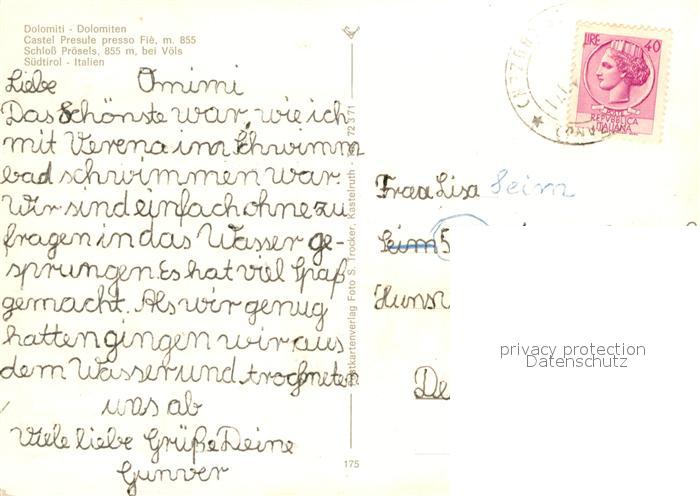 Dolomiti - Dolomiten
Castel Presule presso Fiè, m. 855
Schloß Prösels, 855 m, bei Völs
Südtirol - Italien
Liebe Omimi
Das schönste war, wie ich
mit Verena im Schwimm
bad schwimmen war.
Wir sind einfach ohne zu
fragen in das Wasser ge-
sprungen. Es hat viel Spaß
gemacht. Als wir genug
hatten gingen wir aus
dem Wasser und trockneten
uns ab
Viele liebe Grüße Deine
Gunver
Postkartenverlag Foto S. Trocker, Kastelruth - 72 371
175
LIRE 40
REPVBBLICA
ITALIANA
Frau Lisa Seim
Seim 5
Hunsr
De
privacy protection
Datenschutz